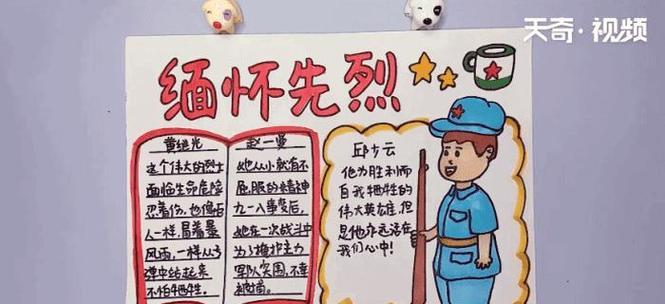 天奇·视频
缅怀先烈
黄继光
这个伟大的烈士
面临生命危险
忍着伤,也像石
人一样,冒着暴
风雨,一样从子
弹中站起来
不怕牺牲。
赵一曼
她从小就有不
屈服的精神
九一八事变后,
她在一次战斗中
为了掩护主力
军队突围,不幸
被捕。
邱少云
他为胜利而
自我牺牲的
伟大英雄,但
是他永远活在
我们心中!